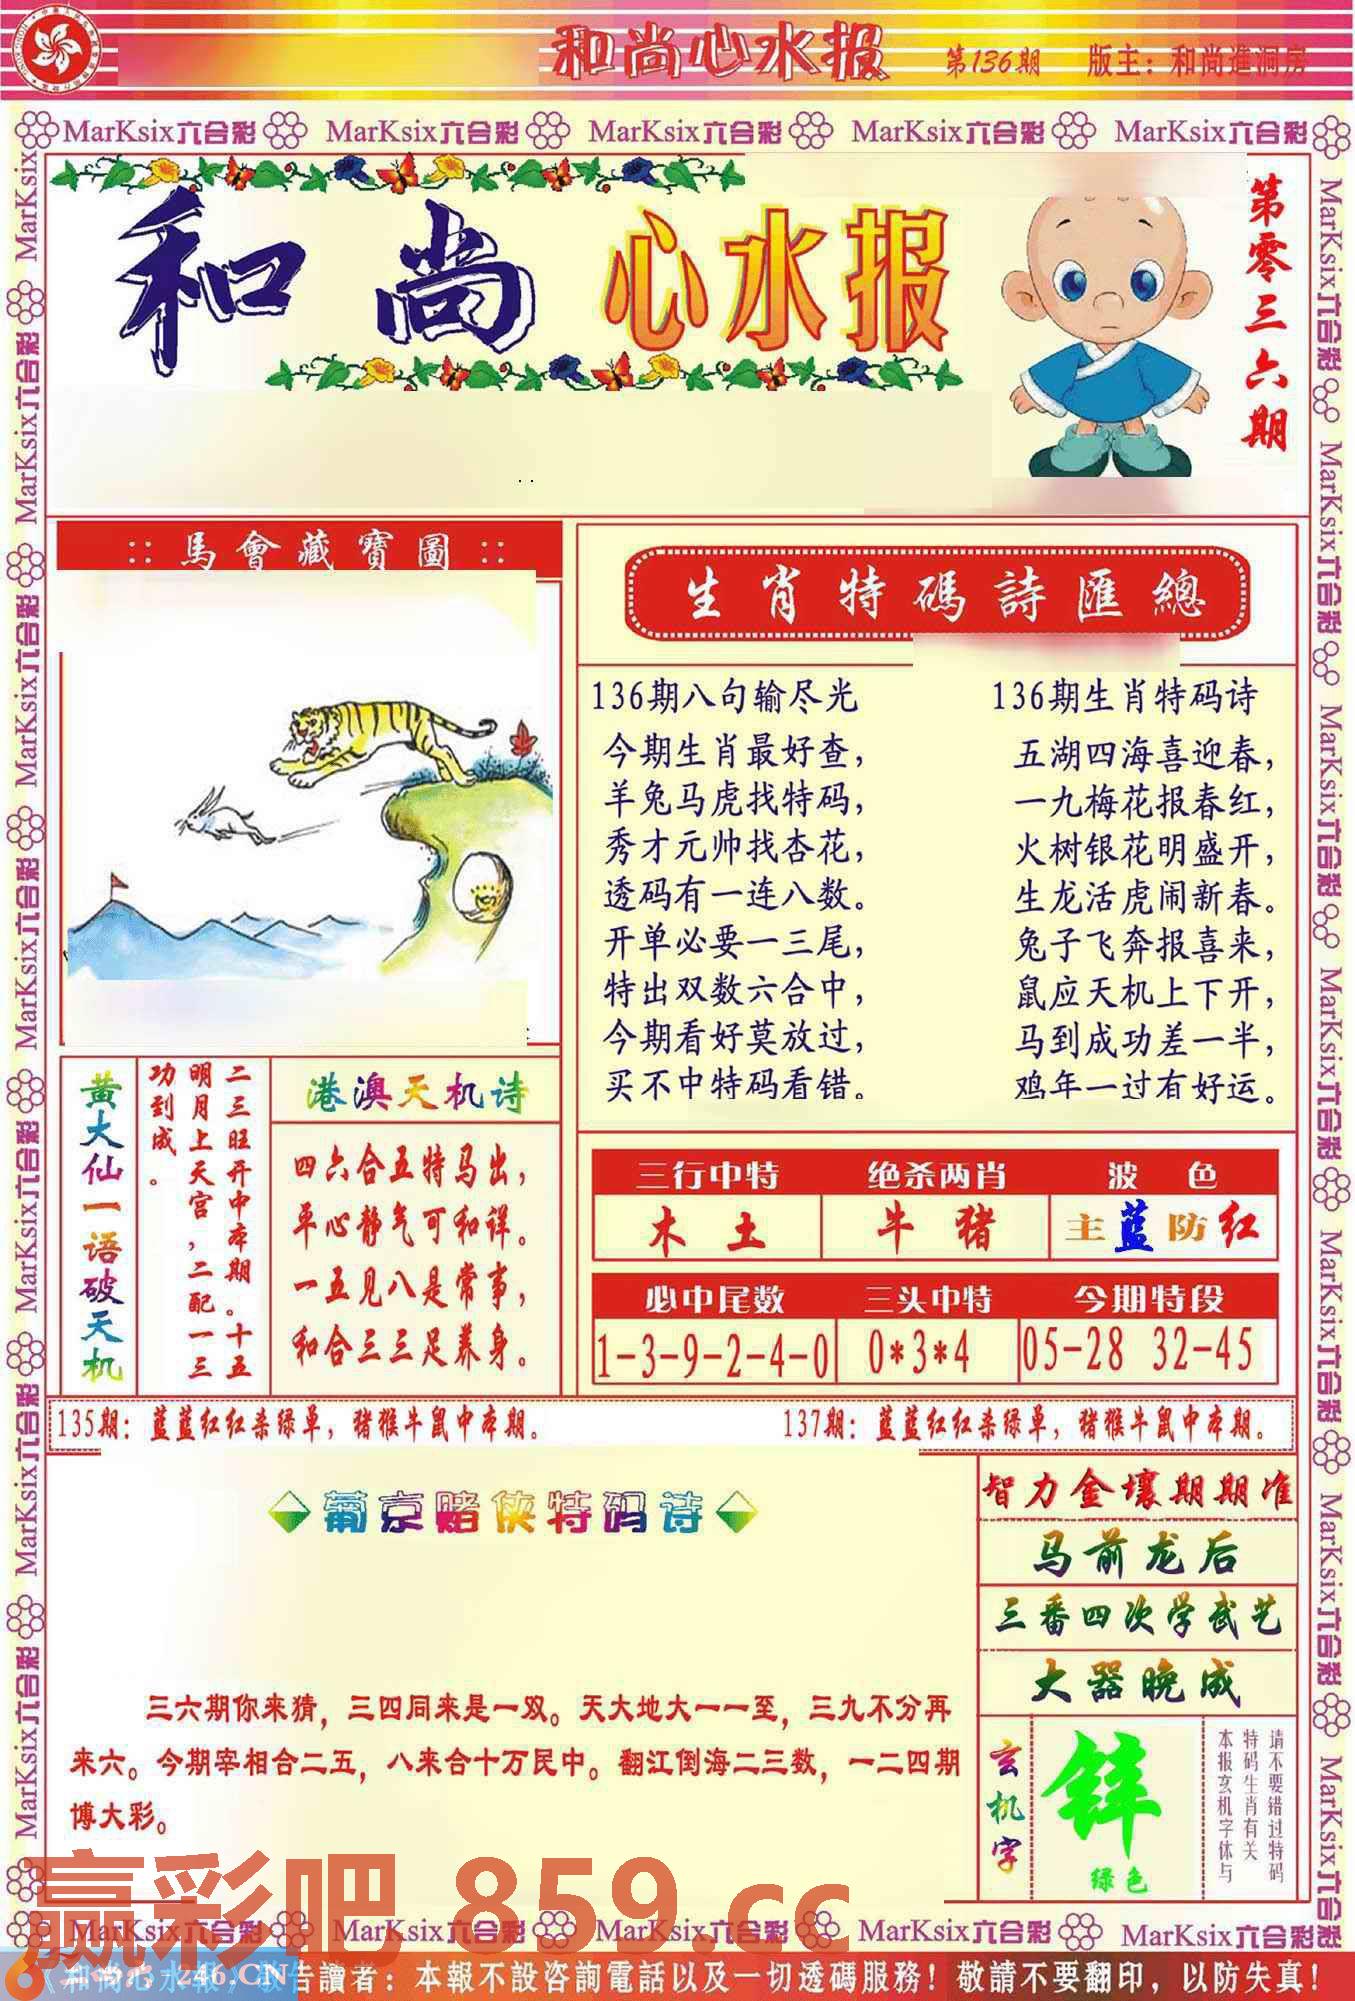 和尚心水报 第136期 版主：和尚進洞房
MarKsix六合彩 MarKsix六合彩 MarKsix六合彩 MarKsix六合彩 MarKsix六合彩
和尚 心水报
第零三六期
:: 馬會藏寶圖 ::
生肖特碼詩匯總
136期八句输尽光
今期生肖最好查，
羊兔马虎找特码，
秀才元帅找杏花，
透码有一连八数。
开单必要一三尾，
特出双数六合中，
今期看好莫放过，
买不中特码看错。
136期生肖特码诗
五湖四海喜迎春，
一九梅花报春红，
火树银花明盛开，
生龙活虎闹新春。
兔子飞奔报喜来，
鼠应天机上下开，
马到成功差一半，
鸡年一过有好运。
黄大仙一语破天机
二三旺开中本期。十五
明月上天宫，二配一三
功到成。
港澳天机诗
四六合五特马出，
平心静气可和详。
一五见八是常事，
和合三三足养身。
三行中特 绝杀两肖 波色
木土 牛猪 主蓝防红
必中尾数 三头中特 今期特段
1-3-9-2-4-0 0*3*4 05-28 32-45
135期：蓝蓝红红杀绿单，猪猴牛鼠中本期。
137期：蓝蓝红红杀绿单，猪猴牛鼠中本期。
葡京赌侠特码诗
三六期你来猜，三四同来是一双。天大地大一一至，三九不分再
来六。今期宰相合二五，八来合十万民中。翻江倒海二三数，一二四期
博大彩。
智力金壤期期准
马前龙后
三番四次学武艺
大器晚成
玄机字
锌
绿色
请不要错过特码
特码生肖有关
本报玄机字体与
赢彩吧 859.cc
MarKsix六合彩 MarKsix六合彩 MarKsix六合彩 MarKsix六合彩 MarKsix六合彩
246.CN
《和尚心水報》敬告讀者：本報不設咨詢電話以及一切透碼服務！敬請不要翻印，以防失真！